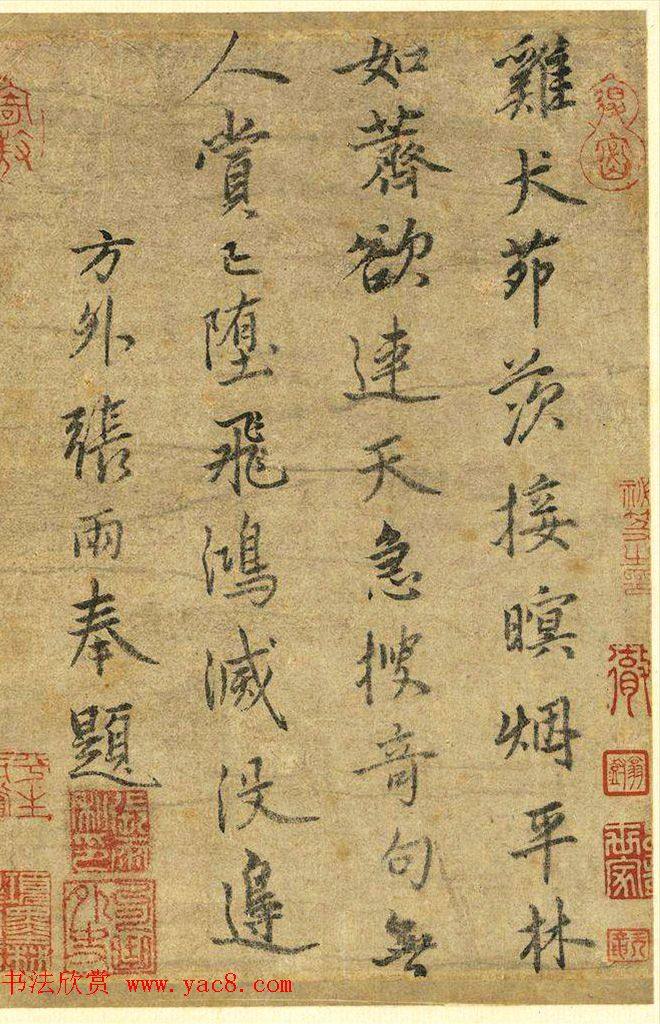 雞犬茆茨接暝烟平林
如薺欲連天急搜奇句無
人賞已墮飛鴻滅没邊
方外張雨奉題
书法欣赏 www.yac8.com